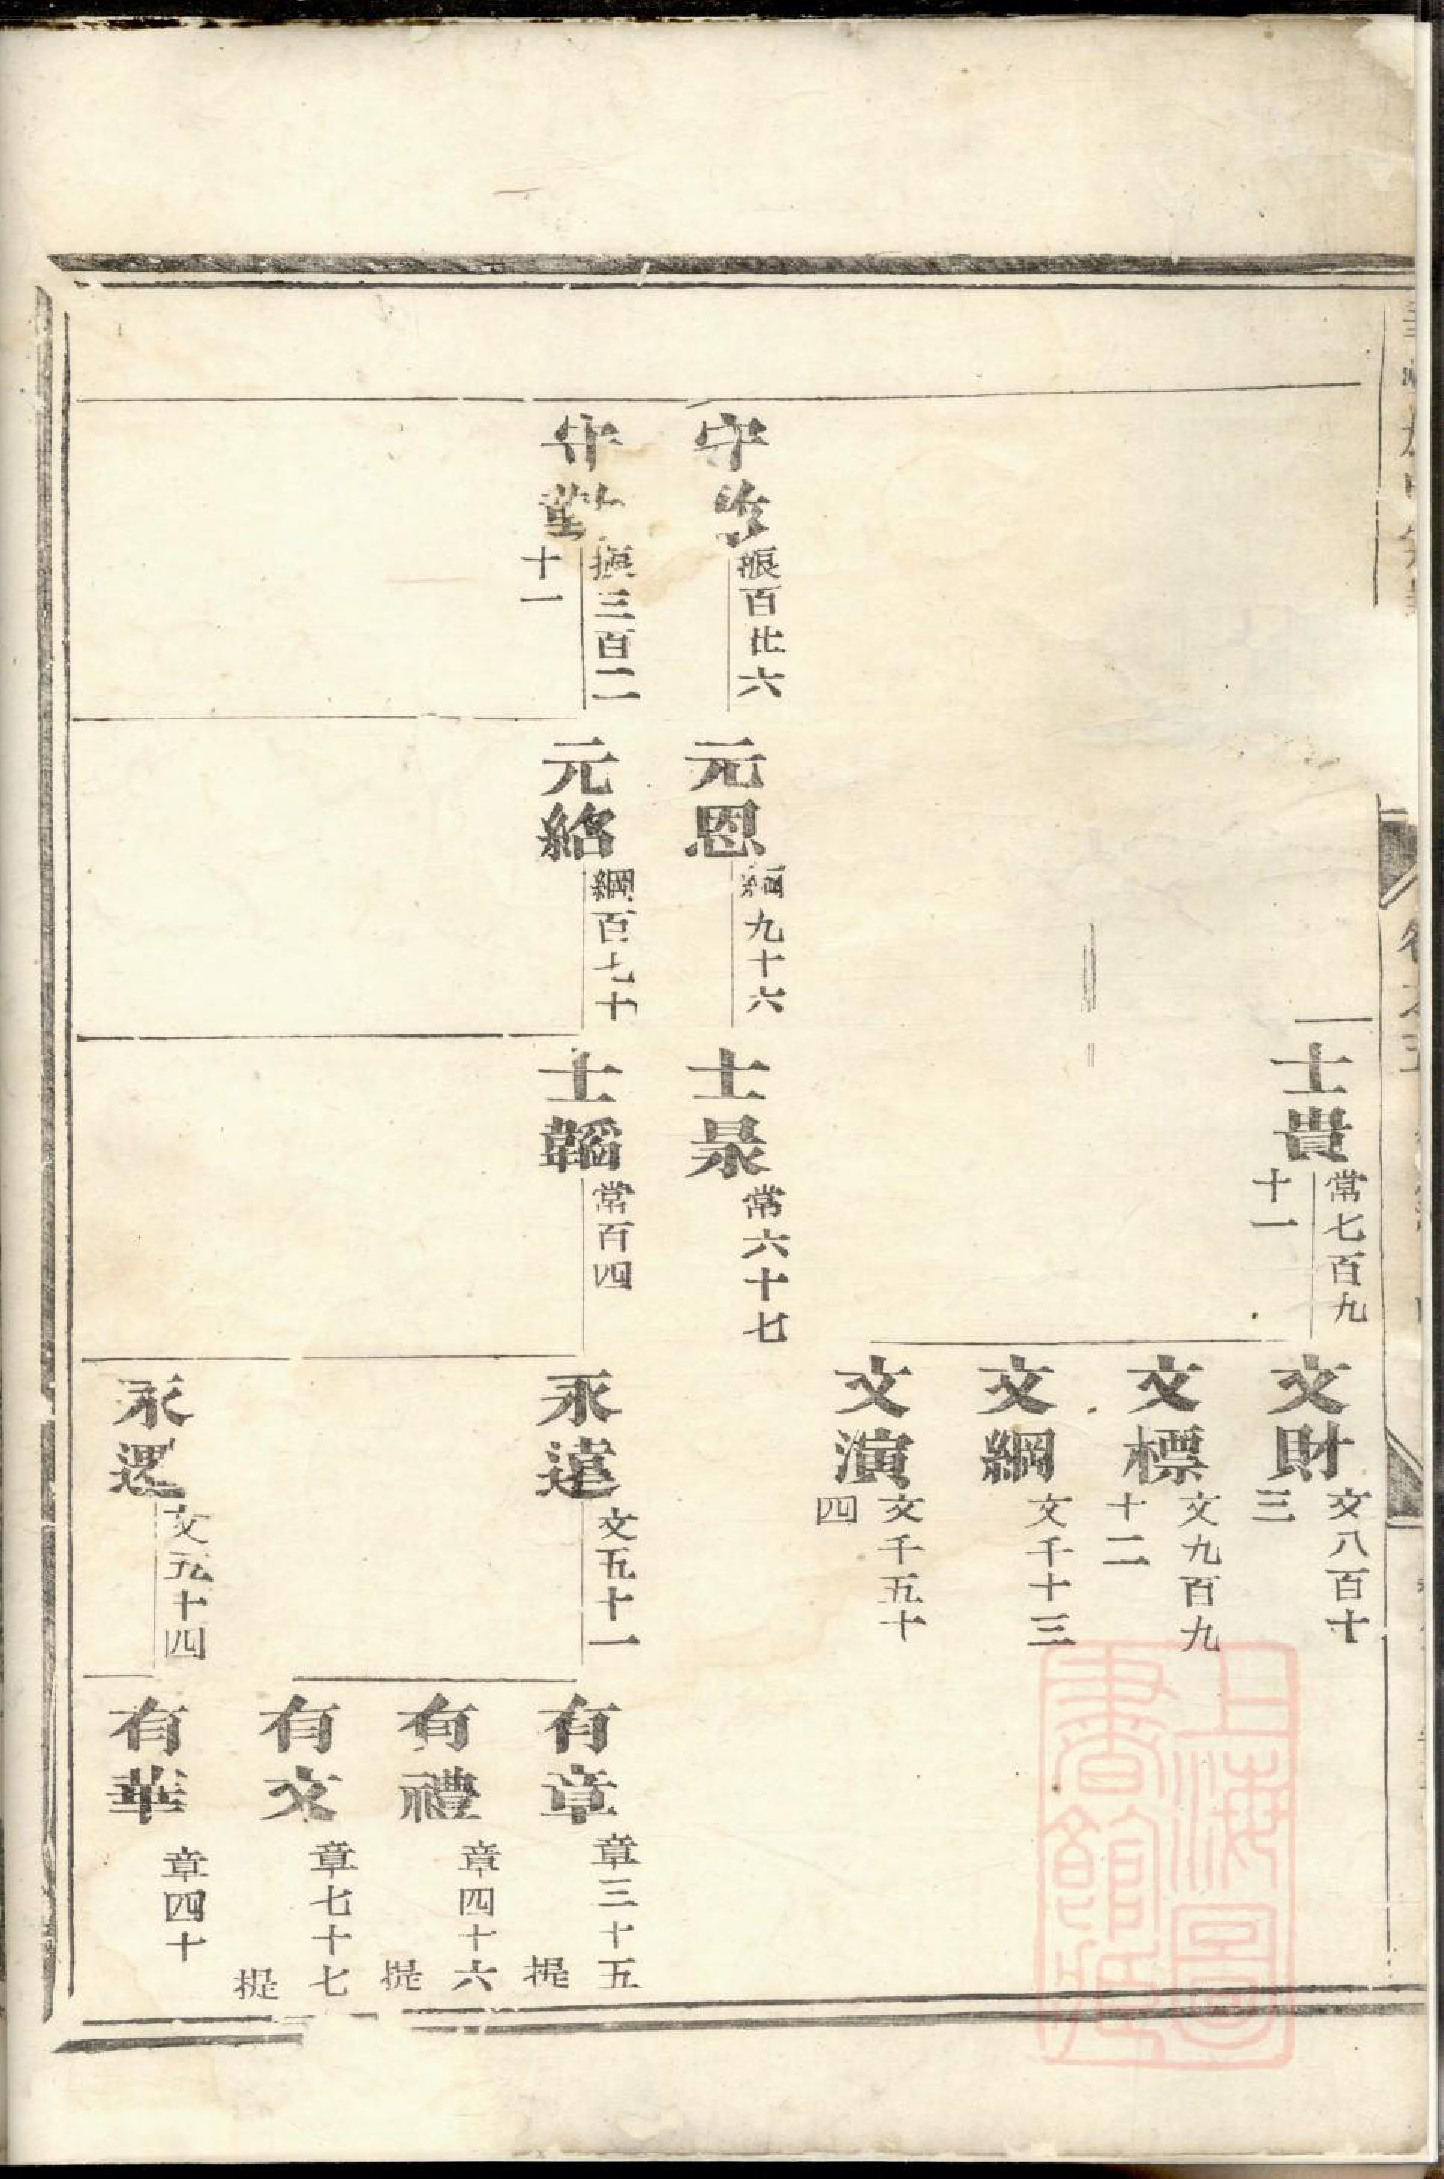 士貴
常七百九
十一
文財
文八百十
三
文標
文九百九
十二
文綱
文千十三
文演
文千五十
四
守
百廿六
元恩
綱九十六
士杲
常六十七
守
三百二
十一
元綹
綱百七十
士韜
常百四
永遠
文五十一
有章
章三十五
提
有禮
章四十六
提
有文
章七十七
提
永選
文五十四
有華
章四十
上海圖
書館藏